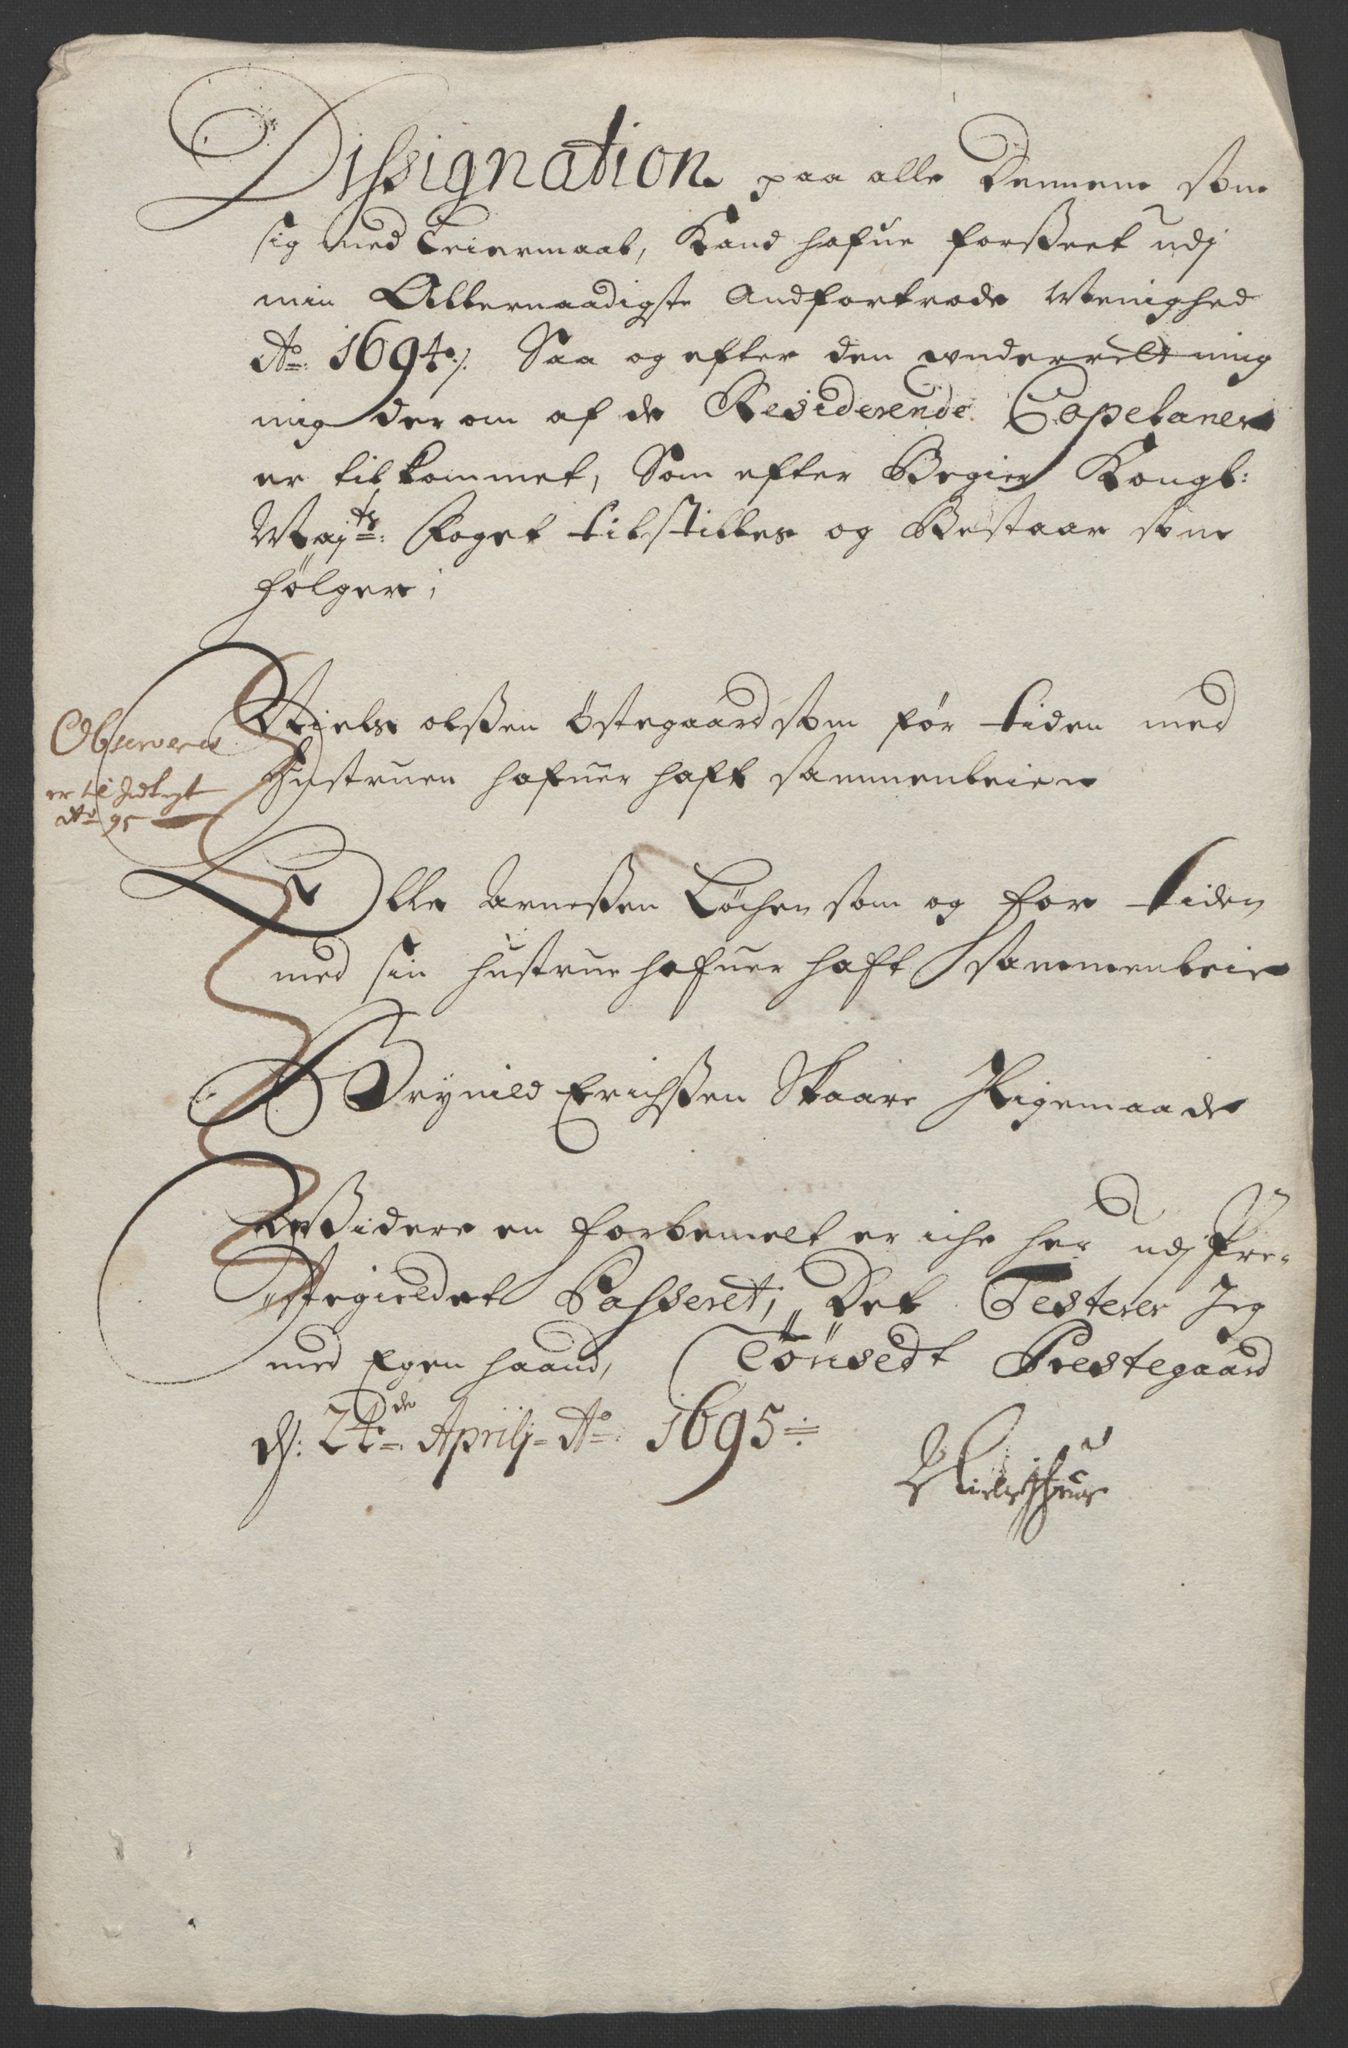 Dissignation paa alle Dennem som
sig med Leiermaal, Kand hafue forsseet udj
min Allernaadigste Andfortrode Menighed
Ao: 1694 /. Saa og efter den underretning
mig der om af de Residerende Capelaner
er tilkommet, Som efter Begier Kongl:
Majts: Foget tilstilles og Bestaar som
følger;
Niels olssen Östegaard som för tiden med
Hustruen hafuer haft sammenleie
Observeris
er til
Ao 95
Olle Arnessen Löchen som og for tiden
med sin hustrue hafuer haft sammenleie
Brynild Erichssen Skaare Ligemaade
Widere en forbemelt er iche her udj Pre-
stegieldet Passeret; Det Testerer Jeg
med Egen haand, Tönsedt Prestegaard
d: 24de Aprilj Ao: 1695